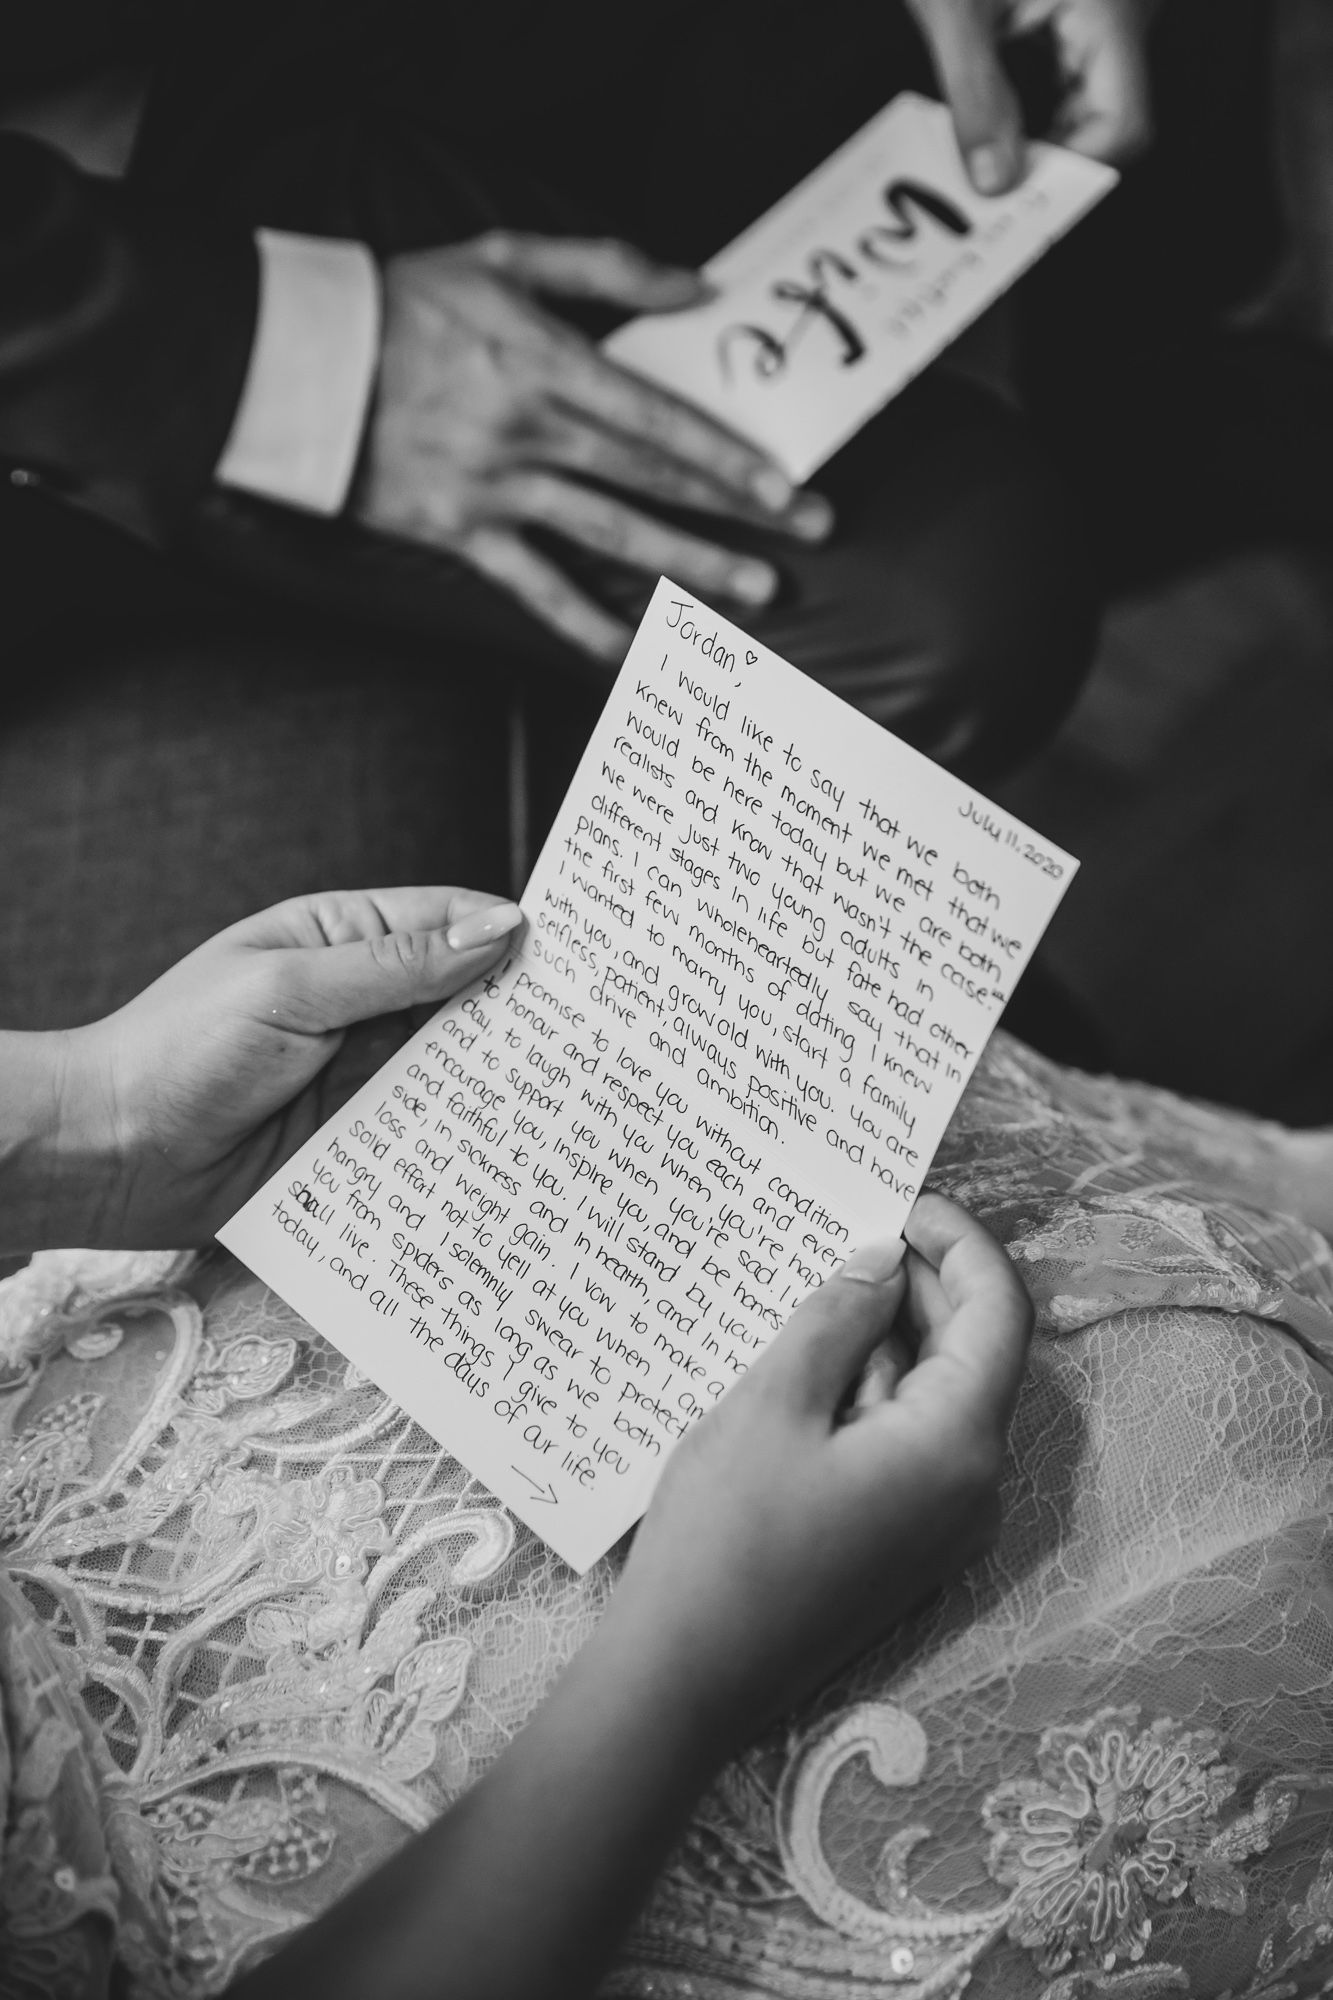 Wife
July 11, 2020
Jordan, ♡
I would like to say that we both
knew from the moment we met that we
would be here today but we are both
realists and know that wasn't the case.
We were just two young adults in
different stages in life but fate had other
plans. I can wholeheartedly say that in
the first few months of dating I knew
I wanted to marry you, start a family
with you, and grow old with you. You are
selfless, patient, always positive and have
such drive and ambition.
I promise to love you without condition,
to honour and respect you each and every
day, to laugh with you when you're happy
and to support you when you're sad. I
encourage you, inspire you, and be hones
and faithful to you. I will stand by your
side, in sickness and in health, and in ha
loss and weight gain. I vow to make a
solid effort not to yell at you when I am
hangry and I solemnly swear to protect
you from spiders as long as we both
shall live. These things I give to you
today, and all the days of our life.
→